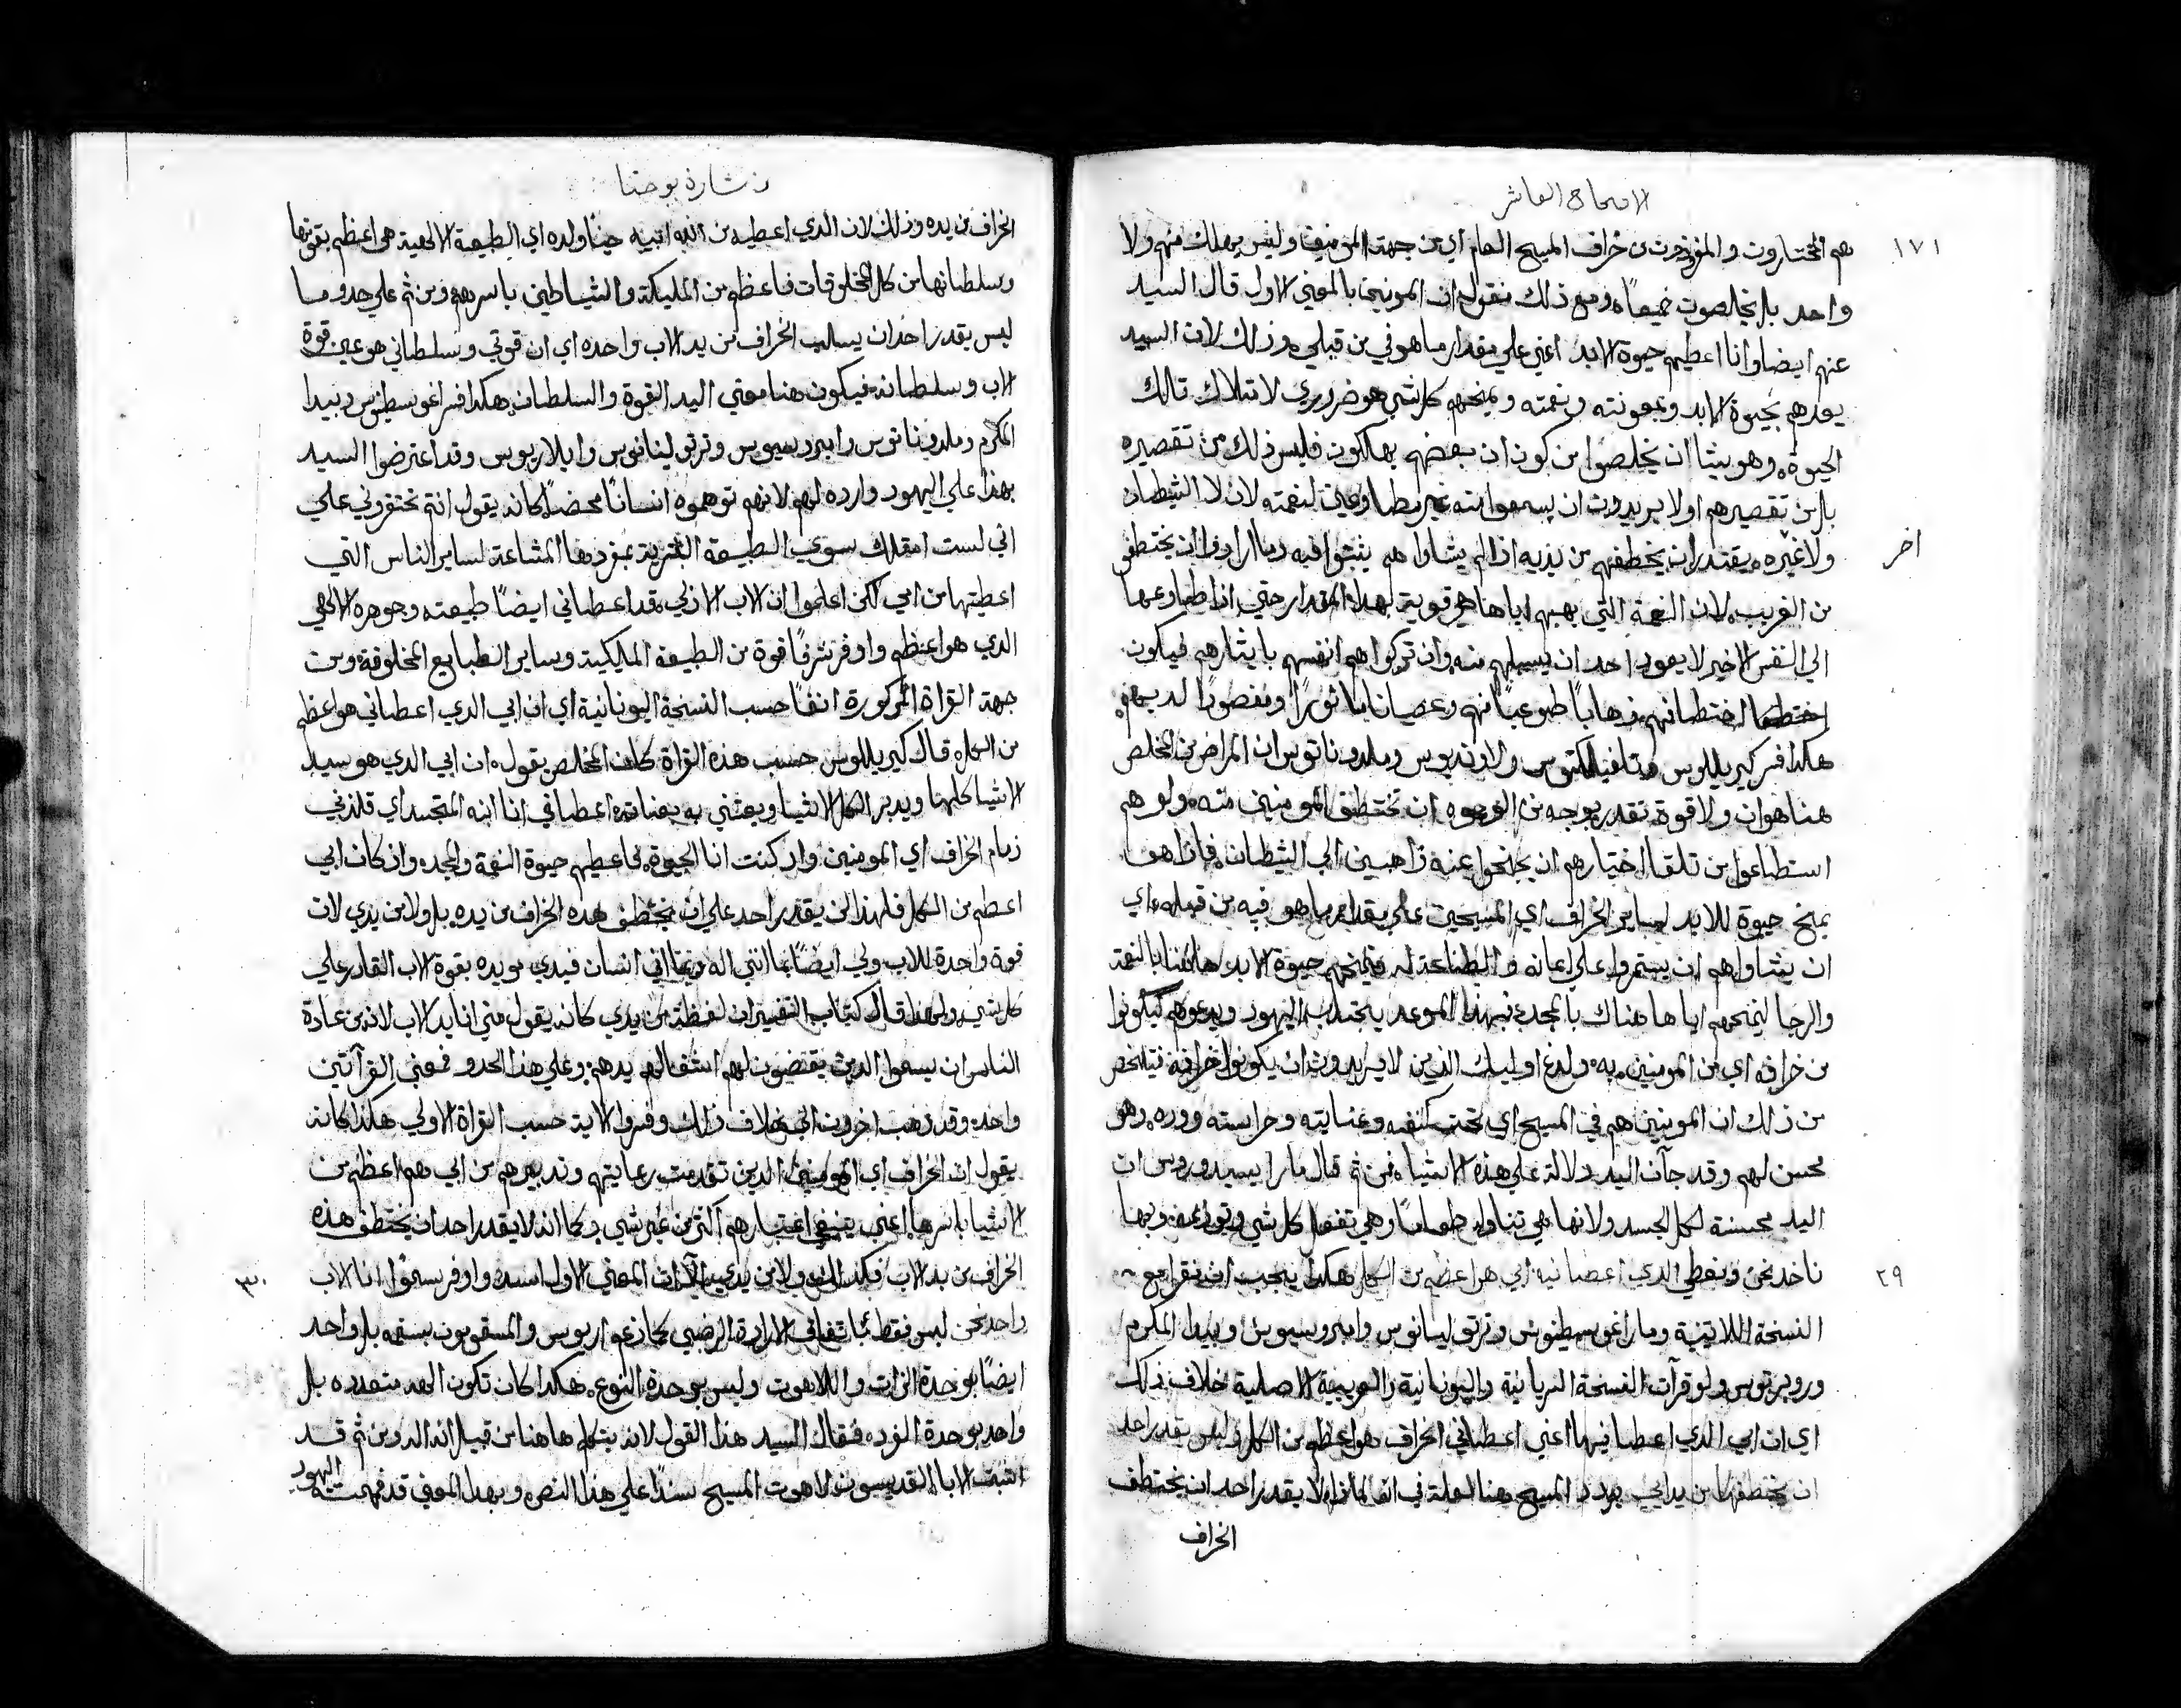 الاصحاح العاشر
١٧١
هم المختارون والمفروزون من خراف المسيح العام اي من جهة المومنين وليس يهلك منهم ولا
واحد بل يخلصون جميعًا ومع ذلك نقول ان المومنين بالمعني الاول قال السيد
عنهم ايضا وانا اعطيهم حيوة الابد اعني علي مقدار ما هو في من قبلي وذلك لان السيد
يعدهم بحيوة الابد وبمعونته ونعمته ويمنحهم كل شي هو ضروري لامتلاك تلك
الحيوة وهو يشا ان يخلصوا من كون ان بعضهم يهلكون فليس ذلك من تقصيره
بل من تقصيرهم اولا يريدون ان يسمعوا منه غير مطاوعين لنعمته لان لا الشيطان
اخر
ولا غيره يقتدر ان يخطفهم من يديه اذا لم يشاوا هم يثبتوا فيه وما ارادوا ان يختطفو
من الغريب لان النعمة التي يهبهم اياها هي قوية لهذا المقدار حتي اذا طاوعها
الي النفس الاخير لا يعود احد ان يسلبهم منه وان تركوا هم انفسهم بايثارهم فيكون
اختطافهم ذهابًا طوعيًا منهم وعصيانا ماثورًا ومقصودًا لديهم
هكذا فسر كيريللوس وثاوفيلكتوس ولاونديوس وملدوناتوس ان المراض من المخلص
هنا هو ان ولا قوة تقدر بوجه من الوجوه ان تختطف المومنين منه ولو هم
استطاعوا من تلقا اختيارهم ان يجنحوا عنه ذاهبين الي الشيطان فاذا هو
يمنح حيوة للابد لساير الخراف اي المسيحين علي مقدار ما هو فيه من قبله اي
ان يشاوا هم ان يستمروا علي ايمانه والطاعة له فيمنحهم حيوة الابد هاهنا بالنعمة
والرجا ليمنحهم اياها هناك بالمجد فبهذا الموعد يجتذب اليهود ويدعوهم ليكونوا
من خرافه اي من المومنين به ولدغ اوليك الذين لا يريدون ان يكونوا خرافه فتلخص
من ذلك ان المومنين هم في المسيح اي تحت كنفه وعنايته وحراسته ووره وهو
محسن لهم وقد جات اليد دلالة علي هذه الاشيا فمن ثم قال مار ايسيدوروس ان
اليد محسنة لكل الجسد ولانها هي تناول طعامًا وهي تفعل كل شي وتوزعه وبها
٢٩
ناخذ نحن ونعطي الذي اعطانيه ابي هو اعظم من الكل هكذا يجب ان نقرا مع
النسخة اللاتينية ومار اغوسطينوس وترتوليانوس وامبروسيوس وبيدا المكرم
وروبرتوس ولو قرآت النسخة السريانية واليونانية والعربية الاصلية خلاف ذلك
اي ان ابي الذي اعطانيها اعني اعطاني الخراف هو اعظم من الكل وليس يقدر احد
ان يختطفها من يد ابي يورد المسيح هنا العلة في انه لماذا لا يقدر احد ان يختطف
الخراف
بشارة يوحنا
الخراف من يده وذلك لان الذي اعطيه من الله ابيه حينا ولده اي الطبيعة الالهية هي اعظم بقوتها
وسلطانها من كل المخلوقات فاعظم من المليكة والشياطين باسرهم ومن ثم علي حدو ما
ليس يقدر احد ان يسلب الخراف من يد الاب واحده اي ان قوتي وسلطاني هو عين قوة
الاب وسلطانه فيكون هنا معني اليد القوة والسلطان هكذا فسر اغوسطينوس وبيدا
المكرم وملدوناتوس وامبروسيوس وترتوليانوس وايلاريوس وقد اعترضوا السيد
بهذا علي اليهود وارده لهم لانهم توهموه انسانًا محضًا كانه يقول انتم تحتقروني علي
اني لست امتلك سوي الطبيعة البشرية بمفردها المشاعة لساير الناس التي
اعطيتها من امي لكن اعلموا ان الاب الازلي قد اعطاني ايضًا طبيعته وجوهره الالهي
الذي هو اعظم واوفر شرفًا قوة من الطبيعة المليكية وساير الطبايع المخلوقة ومن
جهة القراة المذكورة انفًا حسب النسخة اليونانية اي ان ابي الذي اعطاني هو اعظم
من الكل قال كيريللوس حسب هذه القراة كان المخلص يقول ان ابي الذي هو سيد
الاشيا كلها ويدبر الكل الاشيا ويعتني به بعنايته اعطاني انا ابنه المتجسد اي قلدني
زمام الخراف اي المومنين واذ كنت انا الحيوة فاعطيهم حيوة النعمة والمجد واذ كان ابي
اعظم من الكل فلهذا لن يقدر احد علي ان يختطف هذه الخراف من يده بل ولا من يدي لان
قوة واحدة للاب ولي ايضًا بما انني اله وبما اني انسان فيدي مويده بقوة الاب القادر علي
كل شي ولهذا قال كتاب التفسير ان لفظة من يدي كانه يقول مني انا يد الاب لانه من عادة
الناس ان يسموا الذين يقضون لهم اشغالهم يدهم وعلي هذا الحدو فمعني القرآتين
واحد وقد ذهب اخرون الي خلاف ذلك وفسروا الاية حسب القراة الاولي هكذا كانه
يقول ان الخراف اي المومنين الذين تقدمت رعايتهم وتدبيرهم من ابي هم اعظم من
الاشيا باسرها اعني ينبغي اعتبارهم اكثر من غير شي وكما انه لا يقدر احد ان يختطف هذه
٣٠
الخراف من يد الاب فكذلك ولا من يدي الا ان المعني الاول اسد واوفر سموًا انا والاب
واحد نحن ليس فقط باتفاق الارادة الرضيي كما زعم اريوس والمسقوبون ببيعته بل واحد
ايضًا بوحدة الذات واللاهوت وليس بوحدة النوع هكذا كان تكون الهه متعدده بل
واحد بوحدة الفرد فقال السيد هذا القول لانه يتكلم هاهنا من قبل انه اله ومن ثم قد
اثبت الابا القديسون لاهوت المسيح سندًا علي هذا النص وبهذا المعني قد فهمته
اليهود